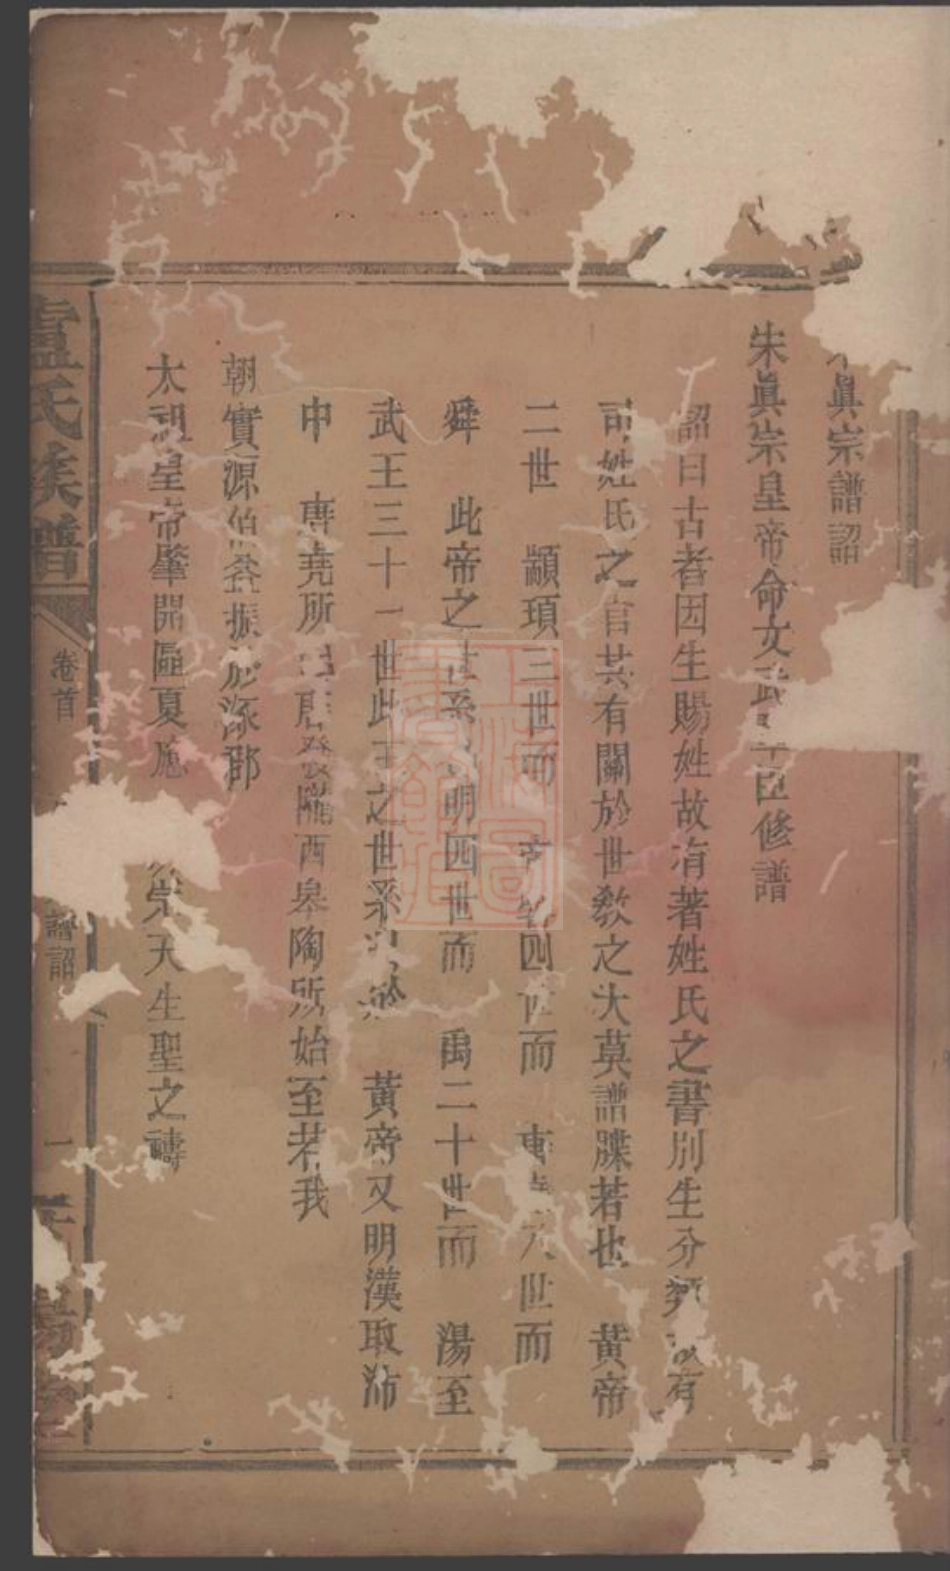 眞宗譜詔
朱眞宗皇帝命文武臣修譜
詔曰古者因生賜姓故有著姓氏之書別生分類有
司姓氏之官其有關於世敎之大莫譜牒若也 黃帝
二世 顓頊三世而 四世而 世而
舜 此帝之世系明四世而 禹二十世而 湯至
武王三十一世此王之世系 黃帝又明漢取沛
中 唐堯所 隴西皋陶所始至若我
朝實源伯益振於涿郡
太祖皇帝肇開區夏應 宗天生聖之禱
盧氏族譜
卷首
譜詔
一